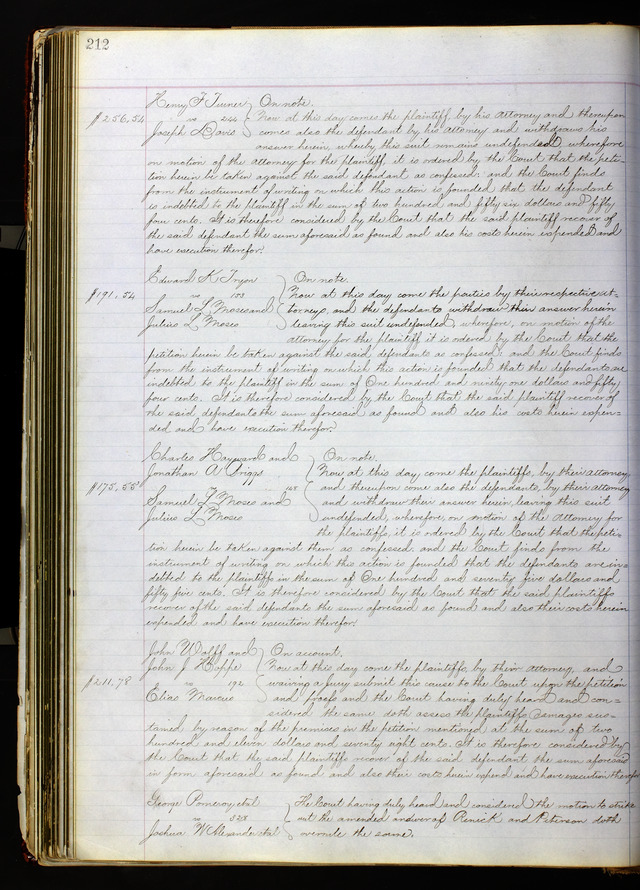 212
Henry F Turner } On note.
$256,54 vs 244 } Now at this day comes the plaintiff by his attorney and thereupon
Joseph Davis } comes also the defendant by his attorney and withdraws his
answer herein, whereby this suit remains undefended wherefore
on motion of the attorney for the plaintiff it is ordered by the Court that the peti-
tion herein be taken against the said defendant as confessed: and the Court finds
from the instrument of writing on which this action is founded that the defendant
is indebted to the plaintiff in the sum of two hundred and fifty six dollars and fifty
four cents. It is therefore considered by the Court that the said plaintiff recover of
the said defendant the sum aforesaid as found and also his costs herein expended and
have execution therefor.
Edward K Tryon } On note.
$191.54 vs } Now at this day come the parties by their respective at-
Samuel L Moses and } torneys, and the defendants withdraw their answer herein
Julius L Moses } leaving this suit undefended wherefore, on motion of the
attorney for the plaintiff it is ordered by the Court that the
petition herein be taken against the said defendants as confessed: and the Court finds
from the instrument of writing on which this action is founded that the defendants are
indebted to the plaintiff in the sum of One hundred and ninety one dollars and fifty
four cents. It is therefore considered by the Court that the said plaintiff recover of
the said defendants the sum aforesaid as found and also his costs herein expen-
ded and have execution therefor.
Charles Hayward and } On note.
Jonathan A Griggs } Now at this day come the plaintiffs, by their attorney
$175,55 } and thereupon come also the defendants, by their attorney
Samuel L Moses and } and withdraw their answer herein, leaving this suit
Julius L Moses } undefended, wherefore, on motion of the attorney for
the plaintiffs, it is ordered by the Court that the peti-
tion herein be taken against them as confessed. and the Court finds from the
instrument of writing on which this action is founded that the defendants are in-
debted to the plaintiffs in the sum of One hundred and seventy five dollars and
fifty five cents. It is therefore considered by the Court that the said plaintiffs
recover of the said defendants the sum aforesaid as found and also their costs herein
expended and have execution therefor.
John Wolff and } On account.
John J Hoppe } Now at this day come the plaintiffs, by their attorney, and
$211.78 vs 192 } waiving a Jury submit this cause to the Court upon the petition
Elias Marcus } and proofs and the Court having duly heard and con-
sidered the same doth assess the plaintiffs damages sus-
tained by reason of the premises in the petition mentioned at the sum of two
hundred and eleven dollars and seventy eight cents. It is therefore considered by
the Court that the said plaintiffs recover of the said defendant the sum aforesaid
in form aforesaid as found and also their costs herein expend and have execution therefor
George Pomeroy et al } The Court having duly heard and considered the motion to strike
vs 528 } out the amended answer of Renick and Peterson doth
Joshua W Alexander et al } overrule the same.